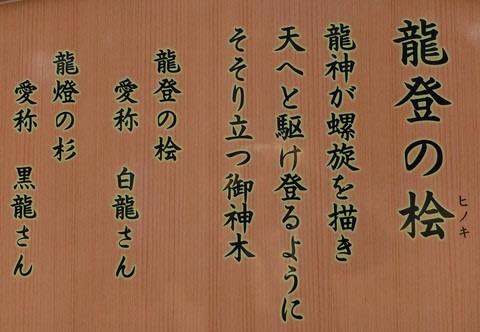 龍登の桧
ヒノキ
龍神が螺旋を描き
天へと駆け登るように
そそり立つ御神木
龍登の桧
愛称 白龍さん
龍燈の杉
愛称 黒龍さん